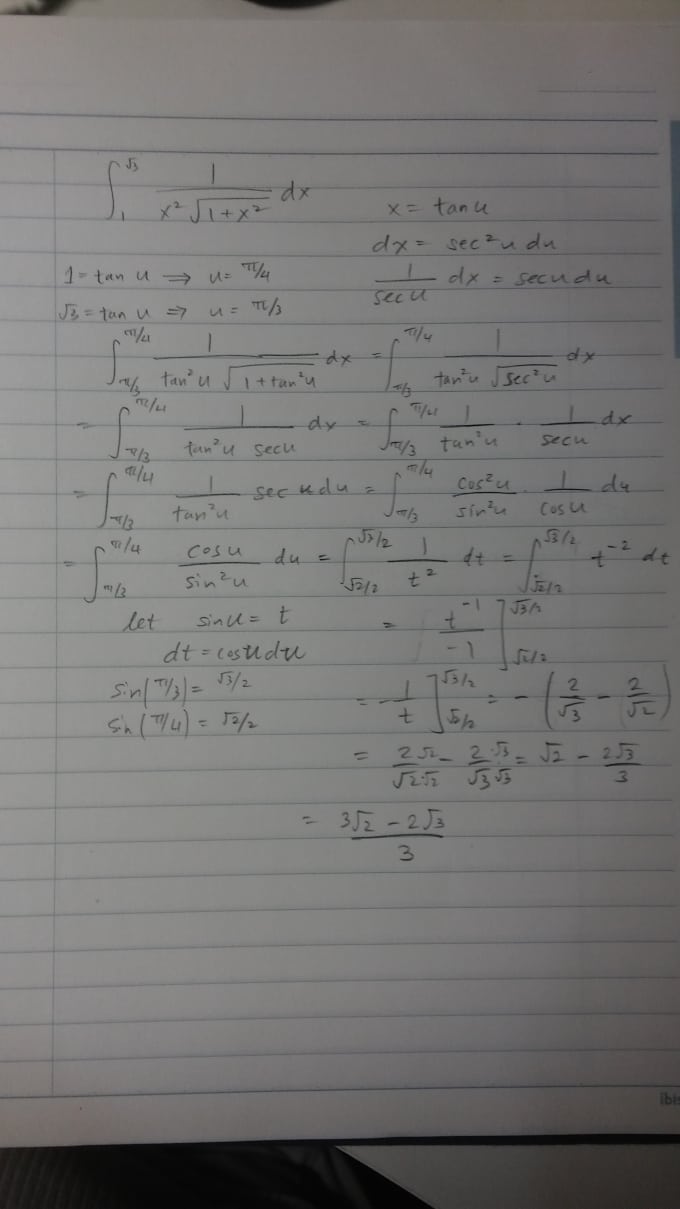 ∫₁^√3 1/(x²√(1+x²)) dx
x = tan u
dx = sec²u du
1 = tan u ⇒ u = π/4
1/sec u dx = sec u du
√3 = tan u ⇒ u = π/3
∫_{π/3}^{π/4} 1/(tan²u √(1+tan²u)) dx = ∫_{π/3}^{π/4} 1/(tan²u √(sec²u)) dx
= ∫_{π/3}^{π/4} 1/(tan²u sec u) dx = ∫_{π/3}^{π/4} 1/tan²u · 1/sec u dx
= ∫_{π/3}^{π/4} 1/tan²u sec u du = ∫_{π/3}^{π/4} cos²u/sin²u · 1/cos u du
= ∫_{π/3}^{π/4} cos u/sin²u du = ∫_{√2/2}^{√3/2} 1/t² dt = ∫_{√2/2}^{√3/2} t⁻² dt
let sin u = t
= t⁻¹/-1 ]_{√2/2}^{√3/2}
dt = cos u du
sin(π/3) = √3/2
= -1/t ]_{√2/2}^{√3/2} = -(2/√3 - 2/√2)
sin(π/4) = √2/2
= 2√2/(√2·√2) - 2·√3/(√3√3) = √2 - 2√3/3
= (3√2 - 2√3)/3